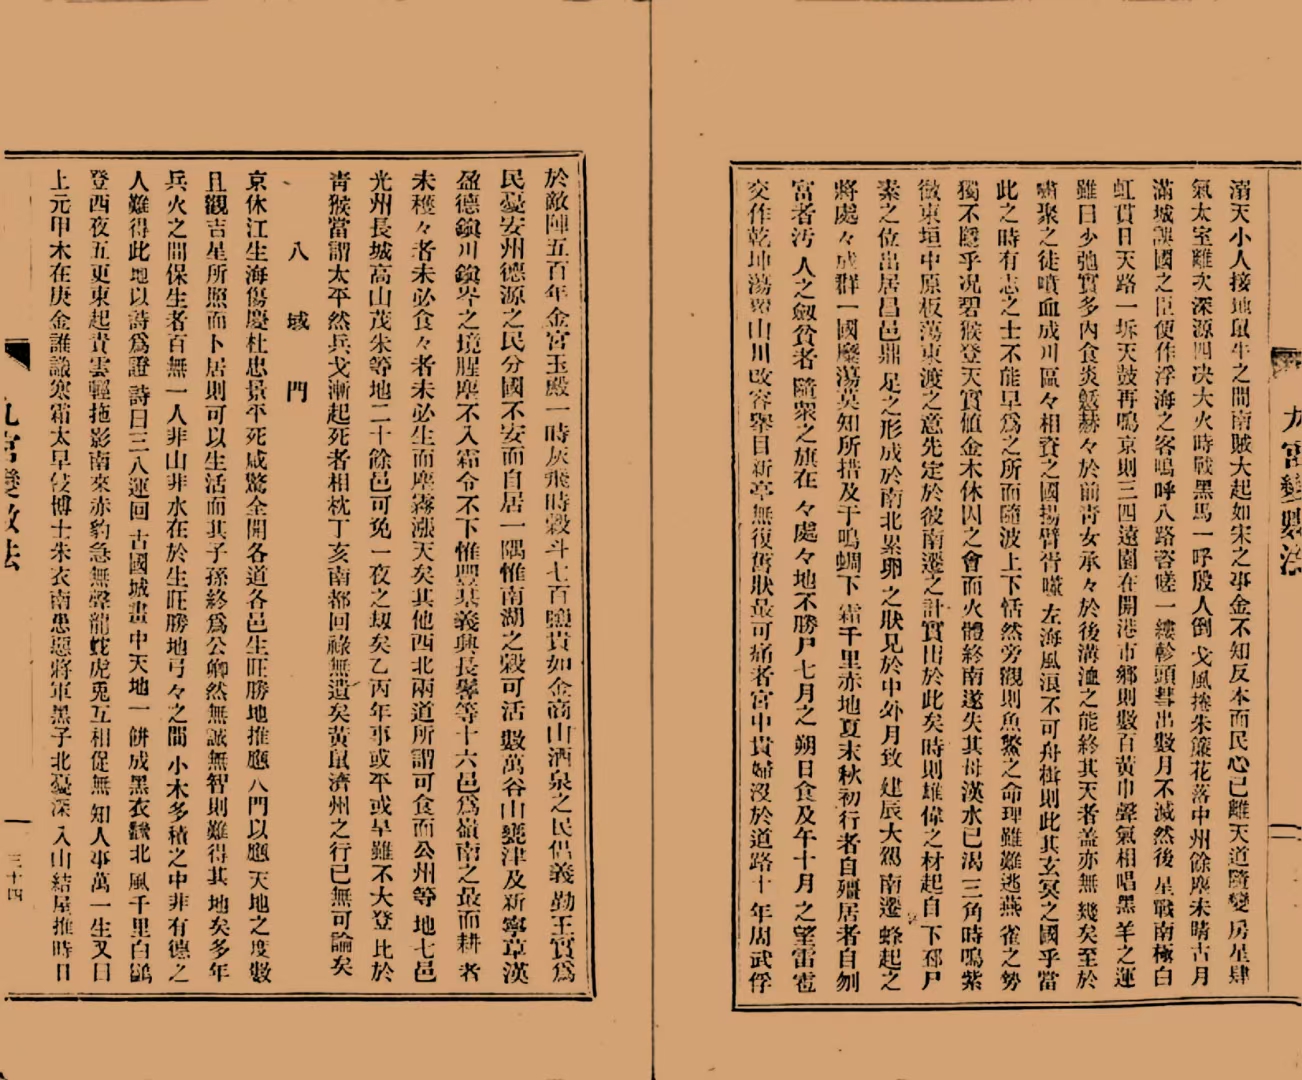 九宮變數法
滔天小人接地鼠牛之間南賊大起如宋之事金不知反本而民心已離天道隨變房星肆
氣太室離次深源四决大火時戰黑馬一呼殷人倒戈風捲朱簾花落中州餘塵未晴古月
滿城誤國之臣便作浮海之客嗚呼八路咨嗟一縷軫頭彗出數月不滅然後星戰南極白
虹貫日天路一坼天鼓再鳴京則三四遠園在開港市鄉則數百黃巾聲氣相唱黑羊之運
雖曰少弛實多內食炎魃赫々於前靑女承々於後溝洫之能終其天者盖亦無幾矣至於
嘯聚之徒噴血成川區々相賚之國揚臂胥嚎左海風浪不可舟楫則此其玄冥之國乎當
此之時有志之士不能早爲之所而隨波上下恬然旁觀則魚鱉之命理雖難逃燕雀之勢
獨不隱乎况碧猴登天實値金木休囚之會而火體終南遂失其母漢水已渴三角時鳴紫
微東垣中原板蕩東渡之意先定於彼南遷之計實出於此矣時則雄偉之材起自下邳尸
素之位出居昌邑鼎足之形成於南北累卵之狀見於中外月致建辰大駕南遷蜂起之
將處々成群一國麾蕩莫知所措及于鳴蜩下霜千里赤地夏末秋初行者自殭居者自刎
富者汚人之劒貧者隨衆之旗在々處々地不勝尸七月之朔日食及午十月之望雷雹
交作乾坤蕩翳山川改容擧目新亭無復舊狀最可痛者宮中貴婦沒於道路十年周武俘
於敵陣五百年金宮玉殿一時灰飛時穀斗七百鹽貴如金商山酒泉之民倡義勤王實爲
民憂安州德源之民分國不安而自居一隅惟南湖之穀可活數萬谷山甕津及新寧草漢
盈德鎭川鎭岑之境腥塵不入霜令不下惟豐基義興長鬐等十六邑爲嶺南之最而耕者
未穫々者未必食々者未必生而塵霧漲天矣其他西北兩道所謂可食而公州等地七邑
光州長城高山茂朱等地二十餘邑可免一夜之刼矣乙丙年事或平或早雖不大登比於
靑猴當謂太平然兵戈漸起死者相枕丁亥南都回祿無遺矣黃鼠濟州之行已無可論矣
八域門
京休江生海傷慶杜忠景平死咸驚全開各道各邑生旺勝地推應八門以應天地之度數
且觀吉星所照而卜居則可以生活而其子孫終爲公卿然無誠無智則難得其地矣多年
兵火之間保生者百無一人非山非水在於生旺勝地弓々之間小木多積之中非有德之
人難得此地以詩爲證詩曰三八運回古國城畫中天地一餅成黑衣蠶北風千里白鷗
登西夜五更東起靑雲輕拖影南來赤豹急無聲龍蛇虎兎互相促無知人事萬一生又曰
上元甲木在庚金誰識寒霜太早侵博士朱衣南愚惡將軍黑子北憂深入山結屋推時日
九宮變數法
三十四